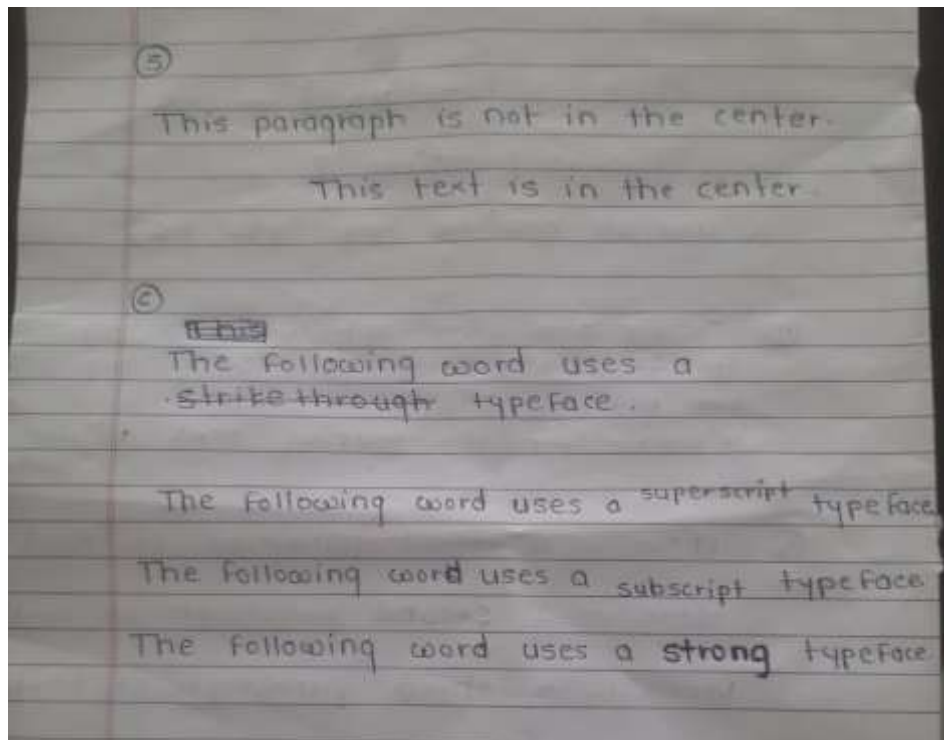 B
This paragraph is not in the center.
This text is in the center.
C
This
The following word uses a
strikethrough typeface.
The following word uses a superscript typeface
The following word uses a subscript typeface
The following word uses a strong typeface